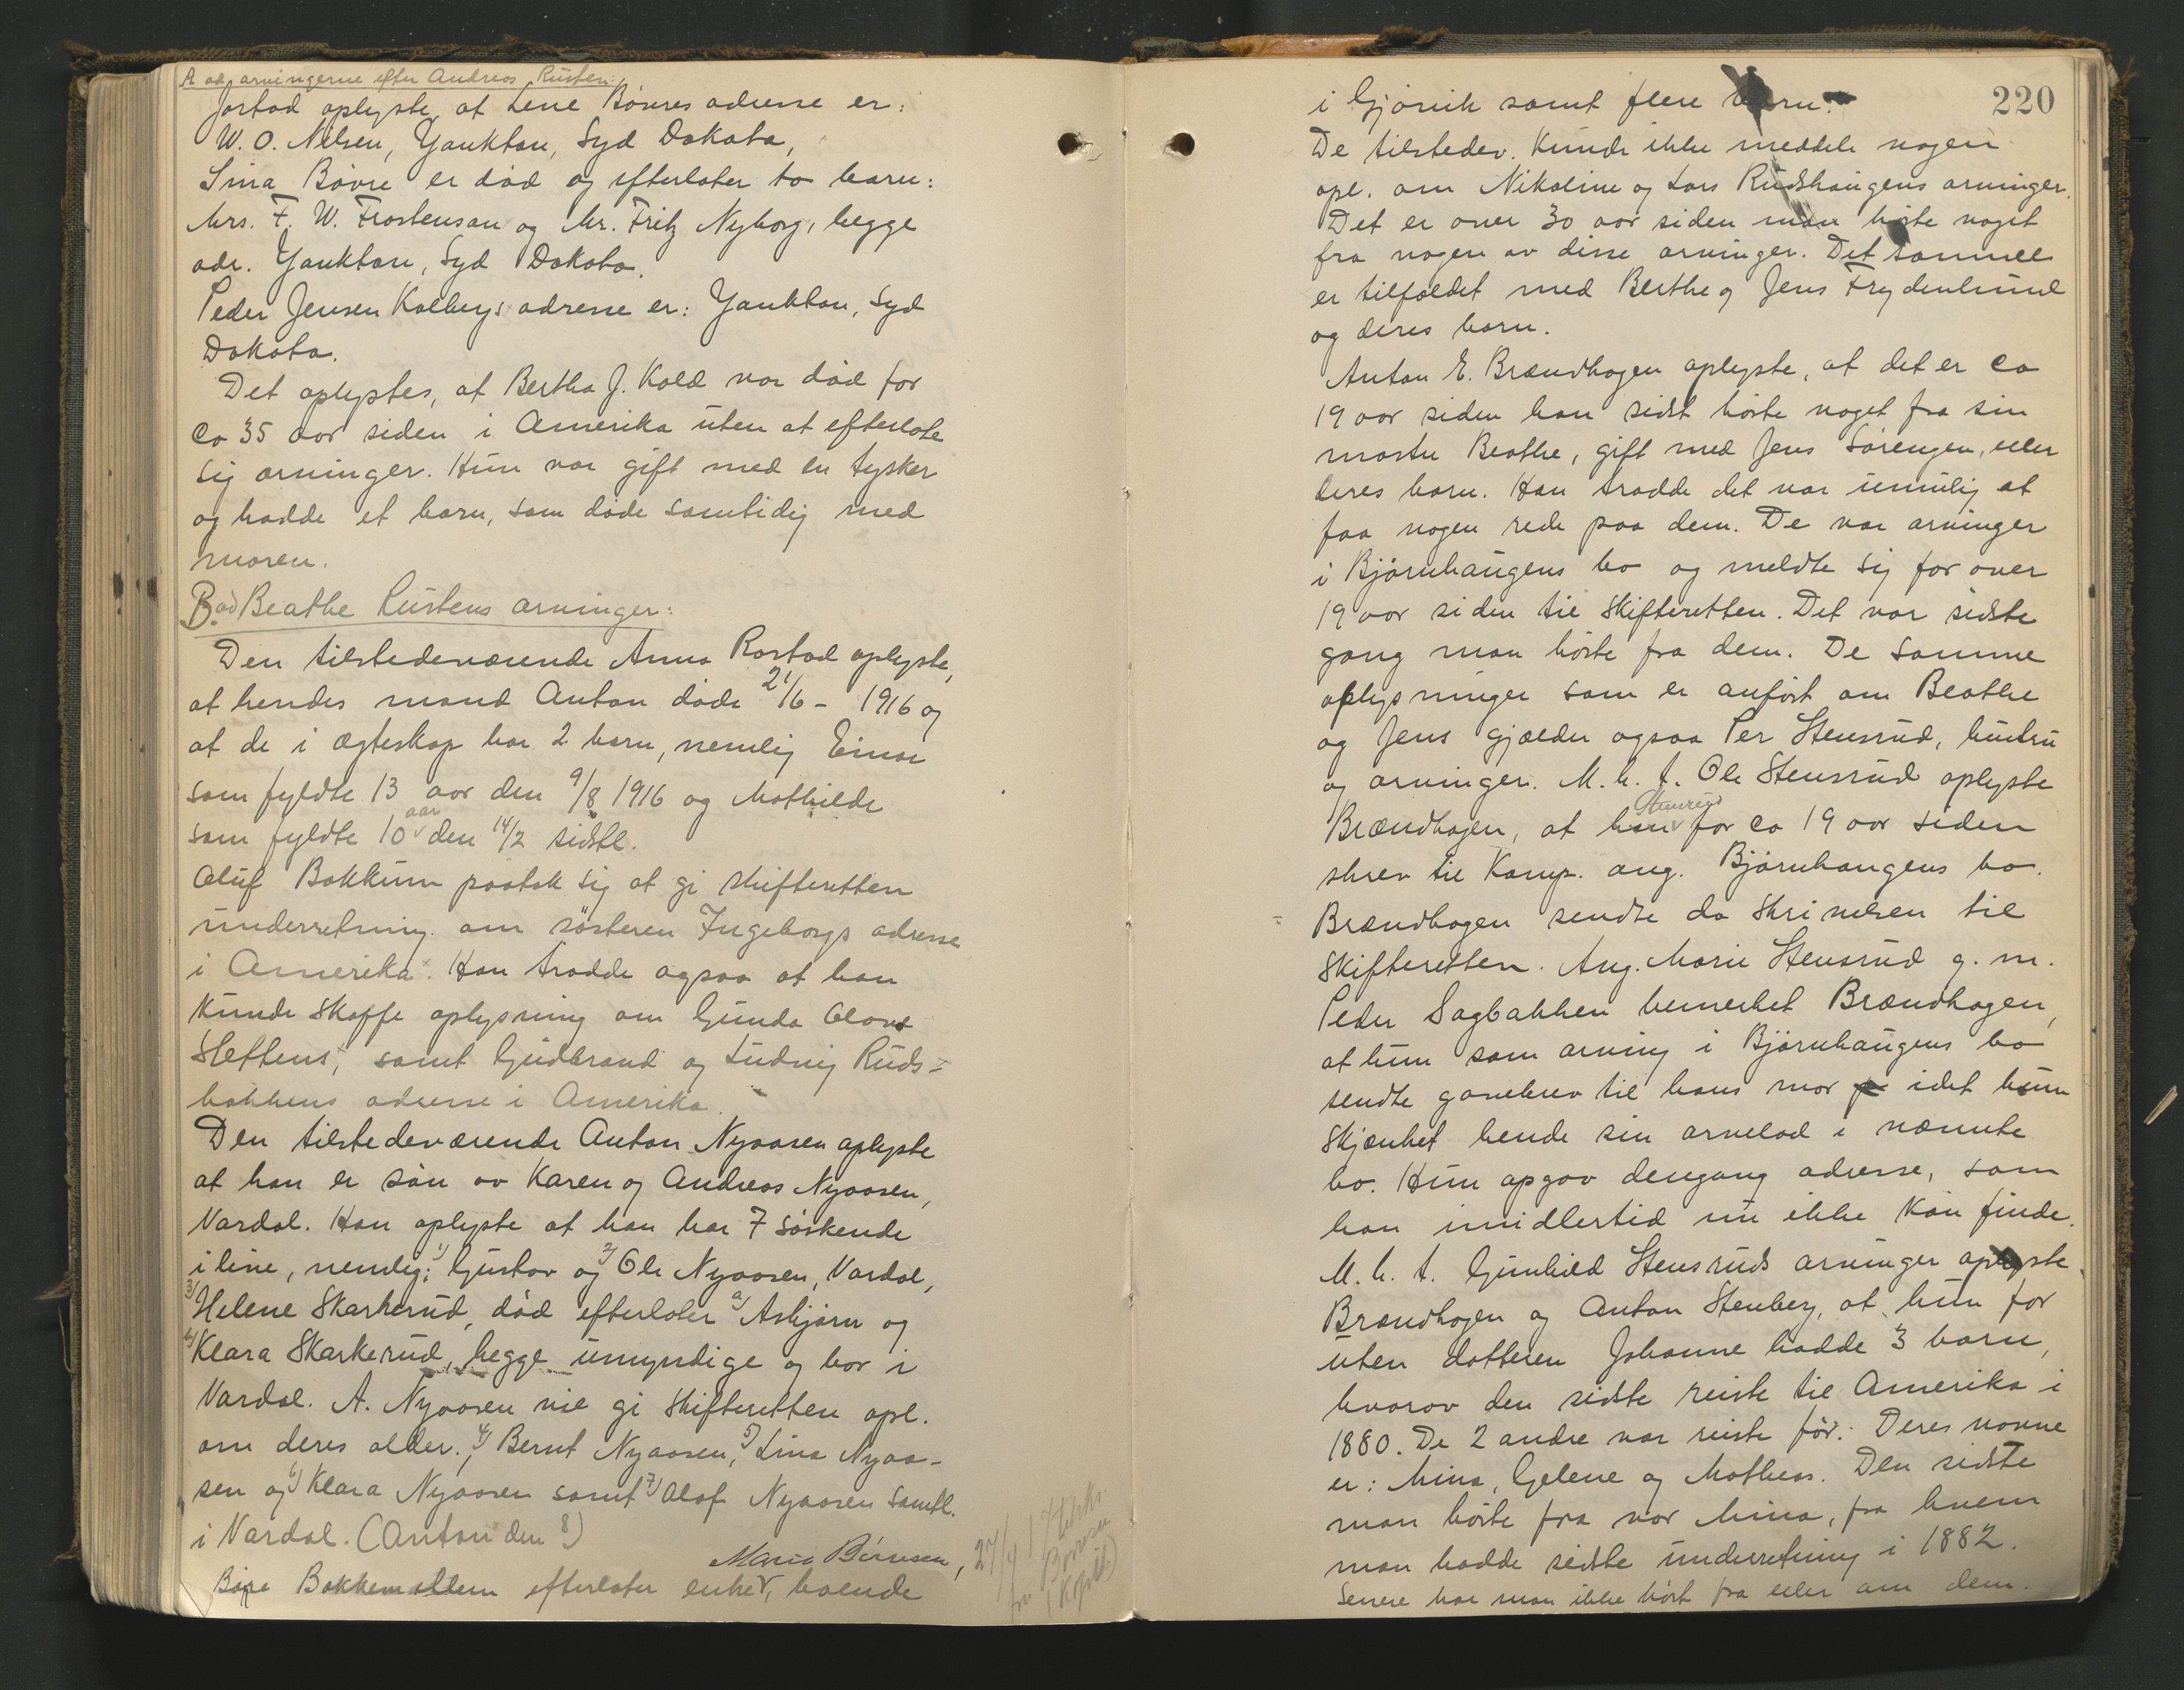 A. ad arvingerne efter Andreas Rusten:
Jostad oplyste, at Lene Bövres adresse er:
W. O. Nelsen, Yankton, Syd Dakota,
Sina Bövre er död og efterlater to barn:
Mrs. F. W. Frostenson og Mr. Fritz Nyborg, begge
adr. Yankton, Syd Dakota.
Peder Jensen Kolbergs adresse er: Yankton, Syd
Dakota.
Det oplystes, at Bertha J. Kold var död for
ca 35 aar siden i Amerika uten at efterlate
sig arvinger. Hun var gift med en tysker
og hadde et barn, som döde samtidig med
moren.
B. ad Beathe Rustens arvinger:
Den tilstedeværende Anna Rostad oplyste,
at hendes mand Anton döde 21/6 - 1916 og
at de i ægteskap har 2 barn, nemlig Einar
som fyldte 13 aar den 9/8 1916 og Mathilde
som fyldte 10 aar den 14/2 sidstl.
Oluf Bakkum paatok sig at gi skifteretten
underretning om sösteren Ingeborgs adresse
i Amerika. Han trodde ogsaa at han
kunde skaffe oplysning om Gunda Olava
Slettens, samt Gudbrand og Ludvig Ruds-
bakkens adresse i Amerika.
Den tilstedeværende Anton Nyaasen oplyste
at han er sön av Karen og Andreas Nyaasen,
Vardal. Han oplyste at han har 7 söskende
i live, nemlig: 1) Gustav og 2) Ole Nyaasen, Vardal,
3) Helene Skarkerud, död efterlater a) Asbjörn og
b) Klara Skarkerud, begge umyndige og bor i
Vardal. A. Nyaasen vil gi skifteretten opl.
om deres alder. 4) Bernt Nyaasen, 5) Lina Nyaa-
sen og 6) Klara Nyaasen samt 7) Olaf Nyaasen samtl.
i Vardal. (Anton den 8)
Maria Börresen, 27/4
Bakkemellem efterlater enke, boende
fru Börresen
220
i Gjövik samt flere barn.
De tilstedev. kunde ikke meddele nogen
opl. om Nikoline og Lars Rudshaugens arvinger.
Det er over 30 aar siden man hörte noget
fra nogen av disse arvinger. Det samme
er tilfældet med Berthe og Jens Frydenlund
og deres barn.
Anton E. Brændhagen oplyste, at det er ca
19 aar siden han sidst hörte noget fra sin
moster Beathe, gift med Jens Sörengen, eller
deres barn. Han trodde det var umulig at
faa nogen rede paa dem. De var arvinger
i Björnhaugens bo og meldte sig for over
19 aar siden til skifteretten. Det var sidste
gang man hörte fra dem. De samme
oplysninger som er anfört om Beathe
og Jens gjælder ogsaa Per Stensrud, hustru
og arvinger. M. h. t. Ole Stensrud oplyste
Brændhagen, at han Stensrud for ca 19 aar siden
skrev til Kamp. ang. Björnhaugens bo.
Brændhagen sendte da skrivelsen til
skifteretten. Ang. Marie Stensrud g. m.
Peder Sagbakken bemerket Brændhagen,
at hun som arving i Björnhaugens bo
sendte gavebrev til hans mor idet hun
skjænket hende sin arvelod i nævnte
bo. Hun opgav dengang adresse, som
han imidlertid nu ikke kan finde.
M. h. t. Gunhild Stensruds arvinger oplyste
Brændhagen og Anton Stenberg, at hun for
uten datteren Johanne hadde 3 barn,
hvorav den sidste reiste til Amerika i
1880. De 2 andre var reist för. Deres navne
er: Mina, Gelene og Mathias. Den sidste
man hörte fra var Mina, fra hvem
man hadde sidste underretning i 1882.
Senere har man ikke hört fra eller om dem.